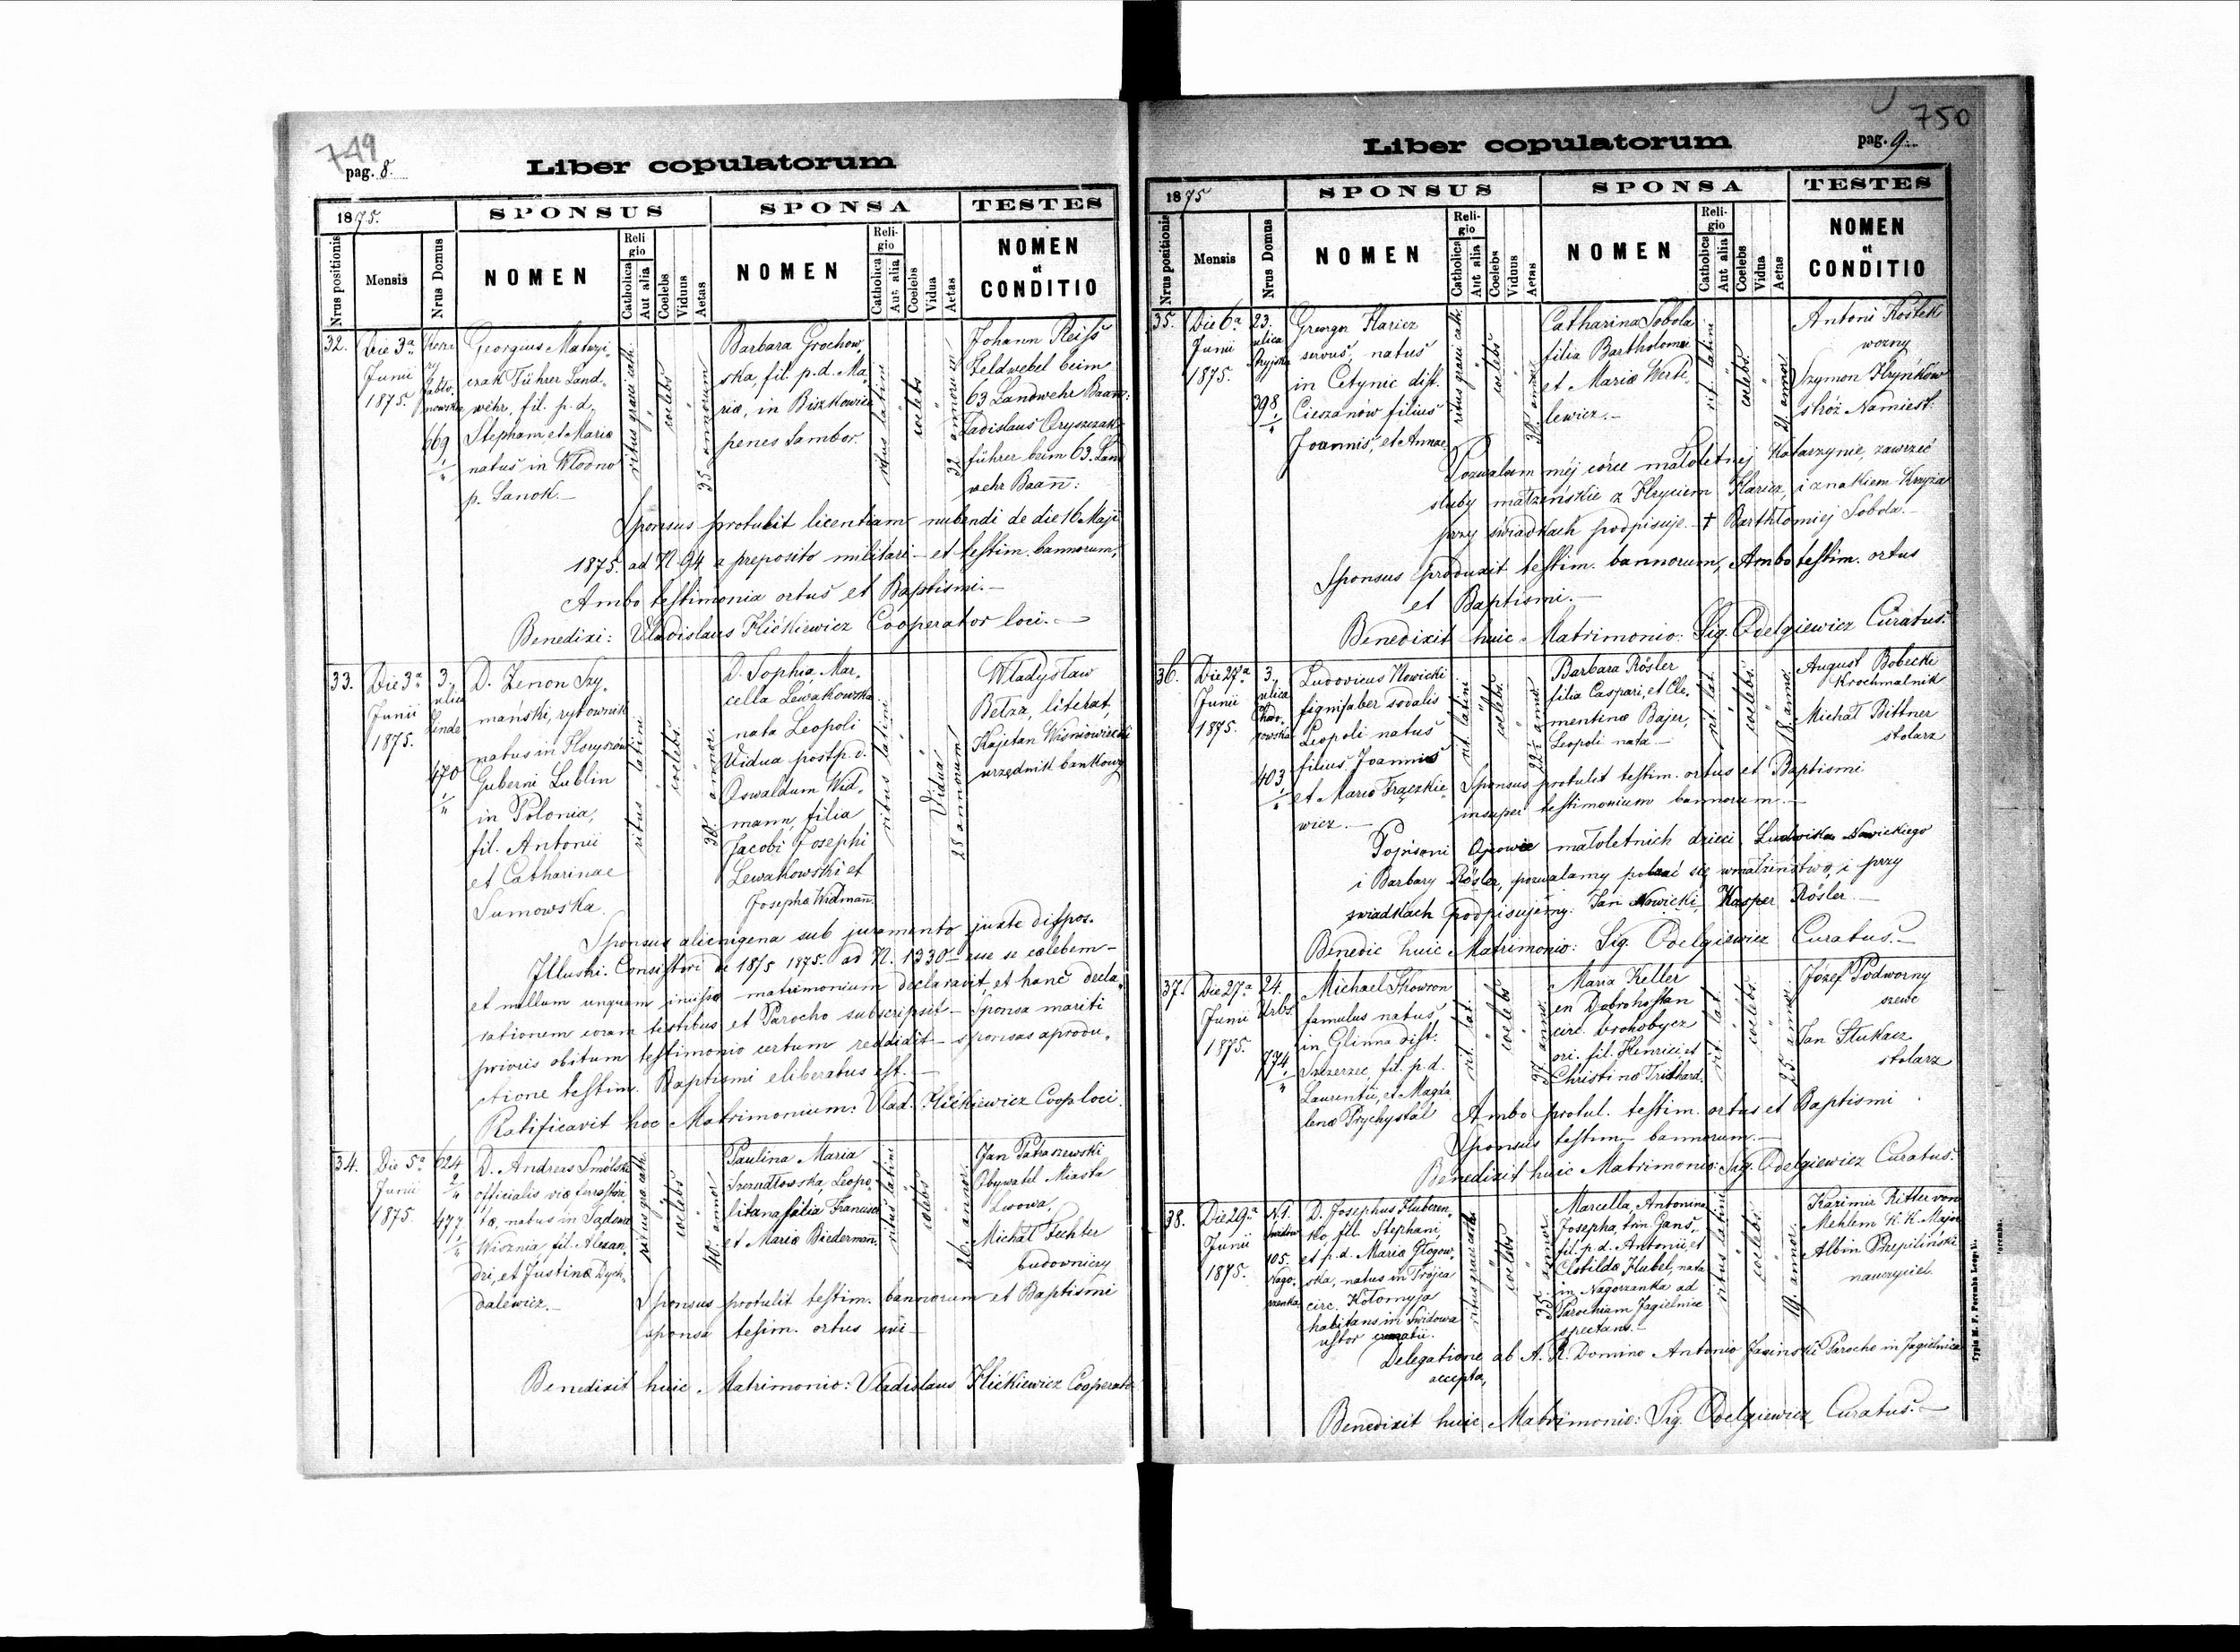 749
pag. 8.
Liber copulatorum
1875.
SPONSUS
SPONSA
TESTES
Nrus positionis
Mensis
Nrus Domus
NOMEN
Religio
Catholica
Aut alia
Coelebs
Viduus
Aetas
NOMEN
Religio
Catholica
Aut alia
Coelebs
Vidua
Aetas
NOMEN
et
CONDITIO
32.
Die 3a
Junii
1875.
669
Georgius
czak Führer Land-
wehr, fil. p. d.
Stephani et Mariæ
natus in Włodno
p. Sanok.—
ritus graeci cath.
coelebs
35 annorum
Barbara Grochow-
ska, fil. p. d. Ma-
riæ, in Biszkowice
penes Sambor.
ritus latini
coelebs
32 annorum
Johann Reiss
Feldwebel beim
63 Landwehr Baon:
Ladislaus Oryszczak
führer beim 63. Land
wehr Baon:
Sponsus protulit licentiam nubendi de die 16 Maji
1875. ad N 94 a preposito militari — et testim. bannorum,
Ambo testimonia ortus et Baptismi.—
Benedixi: Vladislaus Hićkiewicz Cooperator loci.—
33.
Die 3a
Junii
1875.
3,
ulica
Linde
470
D. Zenon Szy-
mański, rytownik
natus in
Guberni Lublin
in Polonia,
fil. Antonii
et Catharinae
Sumowska.
ritus latini
coelebs
30 annor.
D. Sophia, Mar-
cella Lewakowska
nata Leopoli
Vidua post p. d.
Oswaldum Wid-
mann, filia
Jacobi Josephi
Lewakowski et
Josepha Widmann.
ritus latini
Vidua
28 annorum
Władysław
Bełza, literat,
Kajetan Wiśniowiecki
urzędnik bankowy
Sponsus alienigena sub juramento juxte dispos.
Illustri. Consistori de 18/5 1875. ad N. 1330 esse se cœlebem —
et nullum unquam iniisse matrimonium declaravit, et hanc decla-
rationem coram testibus et Parocho subscripsit — Sponsa mariti
prioris obitum testimonio certum reddidit — sponsas a produ-
ctione testim. Baptismi eliberatus est.—
Ratificavit hoc Matrimonium: Vlad. Hićkiewicz Coop loci.
34.
Die 5a
Junii
1875.
624
2/4
477
D. Andreas Smólski
officialis viæ
natus in Sądowa
Wisznia fil. Alexan-
dri, et Justinæ Dych-
dalewicz.—
ritus græ cath.
coelebs
40 annor
Paulina Maria
Szczudłowska, Leopo-
litana filia Francisci
et Mariæ Biederman.
ritus latini
coelebs
26. annor.
Jan Pataszewski
Obywatel Miasta
Lwowa,
Michał Fechter
budowniczy
Sponsus protulit testim. bannorum et Baptismi
sponsa tesim. ortus sui —
Benedixit huic Matrimonio: Vladislaus Hićkiewicz Cooperator
750
pag. 9.
Liber copulatorum
1875
SPONSUS
SPONSA
TESTES
Nrus positionis
Mensis
Nrus Domus
NOMEN
Religio
Catholica
Aut alia
Coelebs
Viduus
Aetas
NOMEN
Religio
Catholica
Aut alia
Coelebs
Vidua
Aetas
NOMEN
et
CONDITIO
35.
Die 6a
Junii
1875.
23.
ulica
Stryjska
398
Gregor Haricz
servus, natus
in Cetynie dist.
Cieszanów filius
Joannis, et Annae
ritus græci cath.
coelebs
Catharina Sobola
filia Bartholomei
et Mariæ Werbi-
lewicz.—
rit. latini
coelebs.
21. annor.
Antoni Kostek
wozny
Szymon Hryńków
stróż Namiest:
Pozwalam méj córce małoletnej Katarzynie, zawrzeć
śluby małzeńskie z Hryciem Haricz, i znakiem krzyża
przy świadkach podpisuje — † Barthłomiej Sobola.—
Sponsus produxit testim. bannorum, Ambo testim. ortus
et Baptismi.—
Benedixit huic Matrimonio: Sig. Odelgiewicz Curatus.
36.
Die 27a
Junii
1875.
3,
ulica
403
Ludovicus Nowicki
lignifaber sodalis
Leopoli natus
filius Joannis
et Mariæ Frączkie-
wicz.—
rit. latini
coelebs.
22½ annor.
Barbara Rösler
filia Caspari, et Cle-
mentinæ Bajer,
Leopoli nata—
rit. lat.
coelebs.
18. anno.
August Bobecki
Krochmalnik
Michał Bittner
stolarz
Sponsus protulit testim. ortus et Baptismi
insuper testimonium bannorum.—
Popisani Ojcowie małoletnich dzieci Ludwika Nowickiego
i Barbary Rösler, pozwalamy pobrać się w małzeństwo, i przy
swiadkach podpisujemy: Jan Nowicki, Kasper Rösler.—
Benedic huic Matrimonio: Sig. Odelgiewicz Curatus.—
37.
Die 27a
Junii
1875.
24.
Urbs
774
Michael Skowron
famulus natus
in Glinna dist.
Szczerzec, fil. p. d.
Laurentii, et Magda-
lenæ Przychystal
rit. lat.
coelebs
37 annor.
Maria Keller
en Dobrohostan
circ. Drohobycz
ori. fil. Henrici et
Christinæ Trithard.
rit. lat.
coelebs.
25. annor.
Józef Podworny
szewc
Jan Stukacz
stolarz
Ambo protul. testim. ortus et Baptismi
Sponsus testim— bannorum.—
Benedixit huic Matrimonio: Sig. Odelgiewicz Curatus.
38.
Die 29a
Junii
1875.
N.1.
105.
Nago-
rzanka
D. Josephus Huberen-
ko, fil. Stephani,
et p. d. Mariæ Głogow-
ska, natus in Trójca
circ. Kołomyja
habitans in Swidowa
ustor
ritus græci cath.
coelebs
35. annor.
Marcella, Antonina
Josepha, trin Gans,
fil. p. d. Antonii, et
Clotildæ Hubel, nata
in Nagorzanka ad
Parochiam Jagielnice
spectans.—
ritus latini
coelebs.
19. annor.
Kazimir Ritter von
Mehlem K. K. Major
Albin Przepiliński
nauczyciel.
Delegatione ab A. R. Domino Antonio Jasinski Parocho in Jagielnica
accepta,
Benedixit huic Matrimonio: Sig. Odelgiewicz Curatus.—
Typis M. F. Poremba Leopoli.